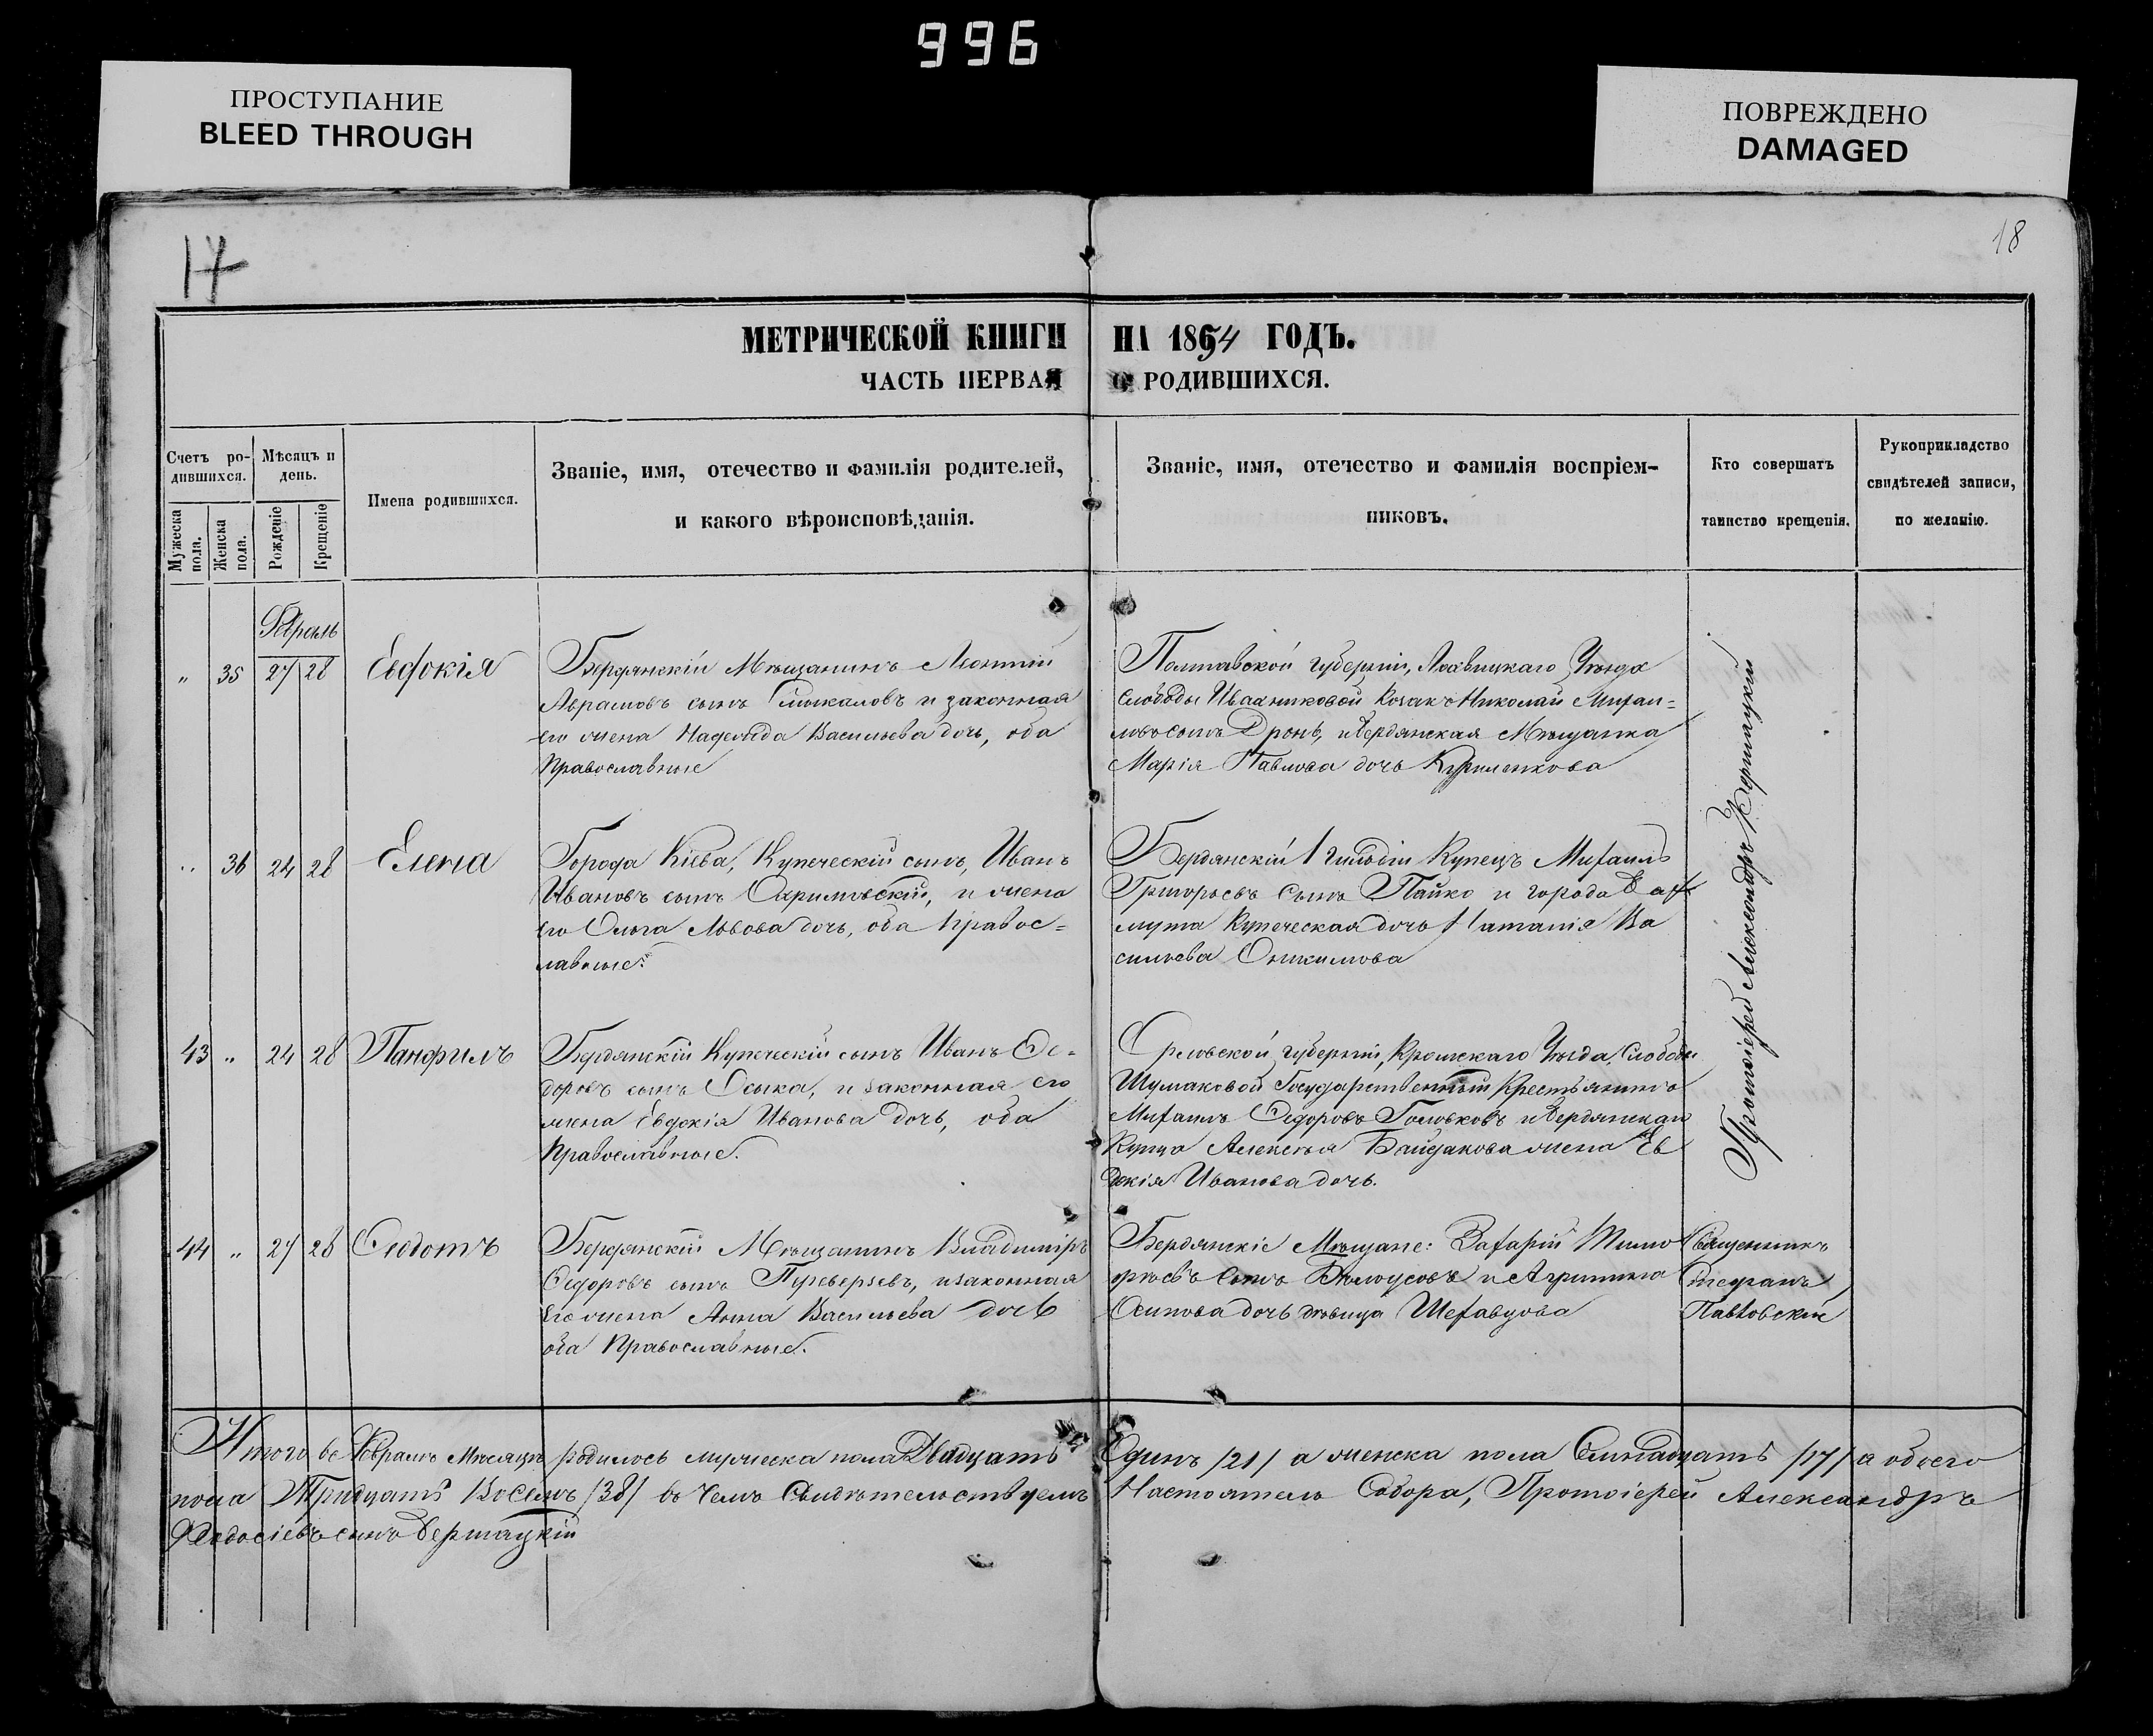 996
ПРОСТУПАНИЕ
BLEED THROUGH
ПОВРЕЖДЕНО
DAMAGED
17
18
МЕТРИЧЕСКОЙ КНИГИ НА 1854 ГОДЪ.
ЧАСТЬ ПЕРВАЯ О РОДИВШИХСЯ.
Счетъ ро-
дившихся.
Мужеска пола.
Женска пола.
Мѣсяцъ и
день.
Рожденіе
Крещеніе
Имена родившихся.
Званіе, имя, отечество и фамилія родителей,
и какого вѣроисповѣданія.
Званіе, имя, отечество и фамилія воспріем-
никовъ.
Кто совершатъ
таинство крещенія.
Рукоприкладство
свидѣтелей записи,
по желанію.
„ 35 27 28 Евдокія
Бердянскій Мѣщанинъ Леонтій
Аврамовъ сынъ и законная
его жена Надежда Васильева дочь, оба
Православные
Полтавской губерніи, Уѣзда
Слободы Козакъ Николай Михаи=
ловъ сынъ Дронь, и Бердянская Мѣщанка
Марія Павлова дочь Куриленкова
„ 36 24 28 Елена
Города Кіева, Купеческій сынъ, Иванъ
Ивановъ сынъ и жена
его Ольга Львова дочь, оба Правос=
лавные.
Бердянскій 1 гильдіи Купецъ Михаилъ
Григорьевъ Сынъ Пайко и города Бах
мута Купеческая дочь Наталія Ва
сильева
43 „ 24 28 Панфилъ
Бердянскій Купеческій сынъ Иванъ Ѳе=
доровъ сынъ Осыка, и законная его
жена Евдокія Иванова дочь, оба
Православные.
Орловской губерніи, Кромскаго Уѣзда, Слободы
Шумаковой Государственный Крестьянинъ
Михаилъ Ѳедоровъ Головковъ и Бердянскаго
Купца Алексѣя Байдакова жена Ев
докія Иванова дочь.
Протоіерей Александръ
44 „ 27 28 Ѳеодотъ
Бердянскій Мѣщанинъ Владиміръ
Ѳедоровъ сынъ и законная
его жена Анна Васильева дочь
оба Православные.
Бердянскіе Мѣщане: Захарій Тимо
ѳеевъ Сынъ Бѣлоусовъ и Агрипина
Осипова дочь дѣвица
Священникъ
Стефанъ
Павловскій
Итого въ Февралѣ Мѣсяцѣ родилось мужеска пола Двадцать Одинъ /21/ а женска пола Семнадцать /17/ а обоего
пола Тридцать Восемь /38/ въ чемъ Свидѣтельствуемъ Настоятель Собора, Протоіерей Александръ
Ѳеодосіевъ сынъ